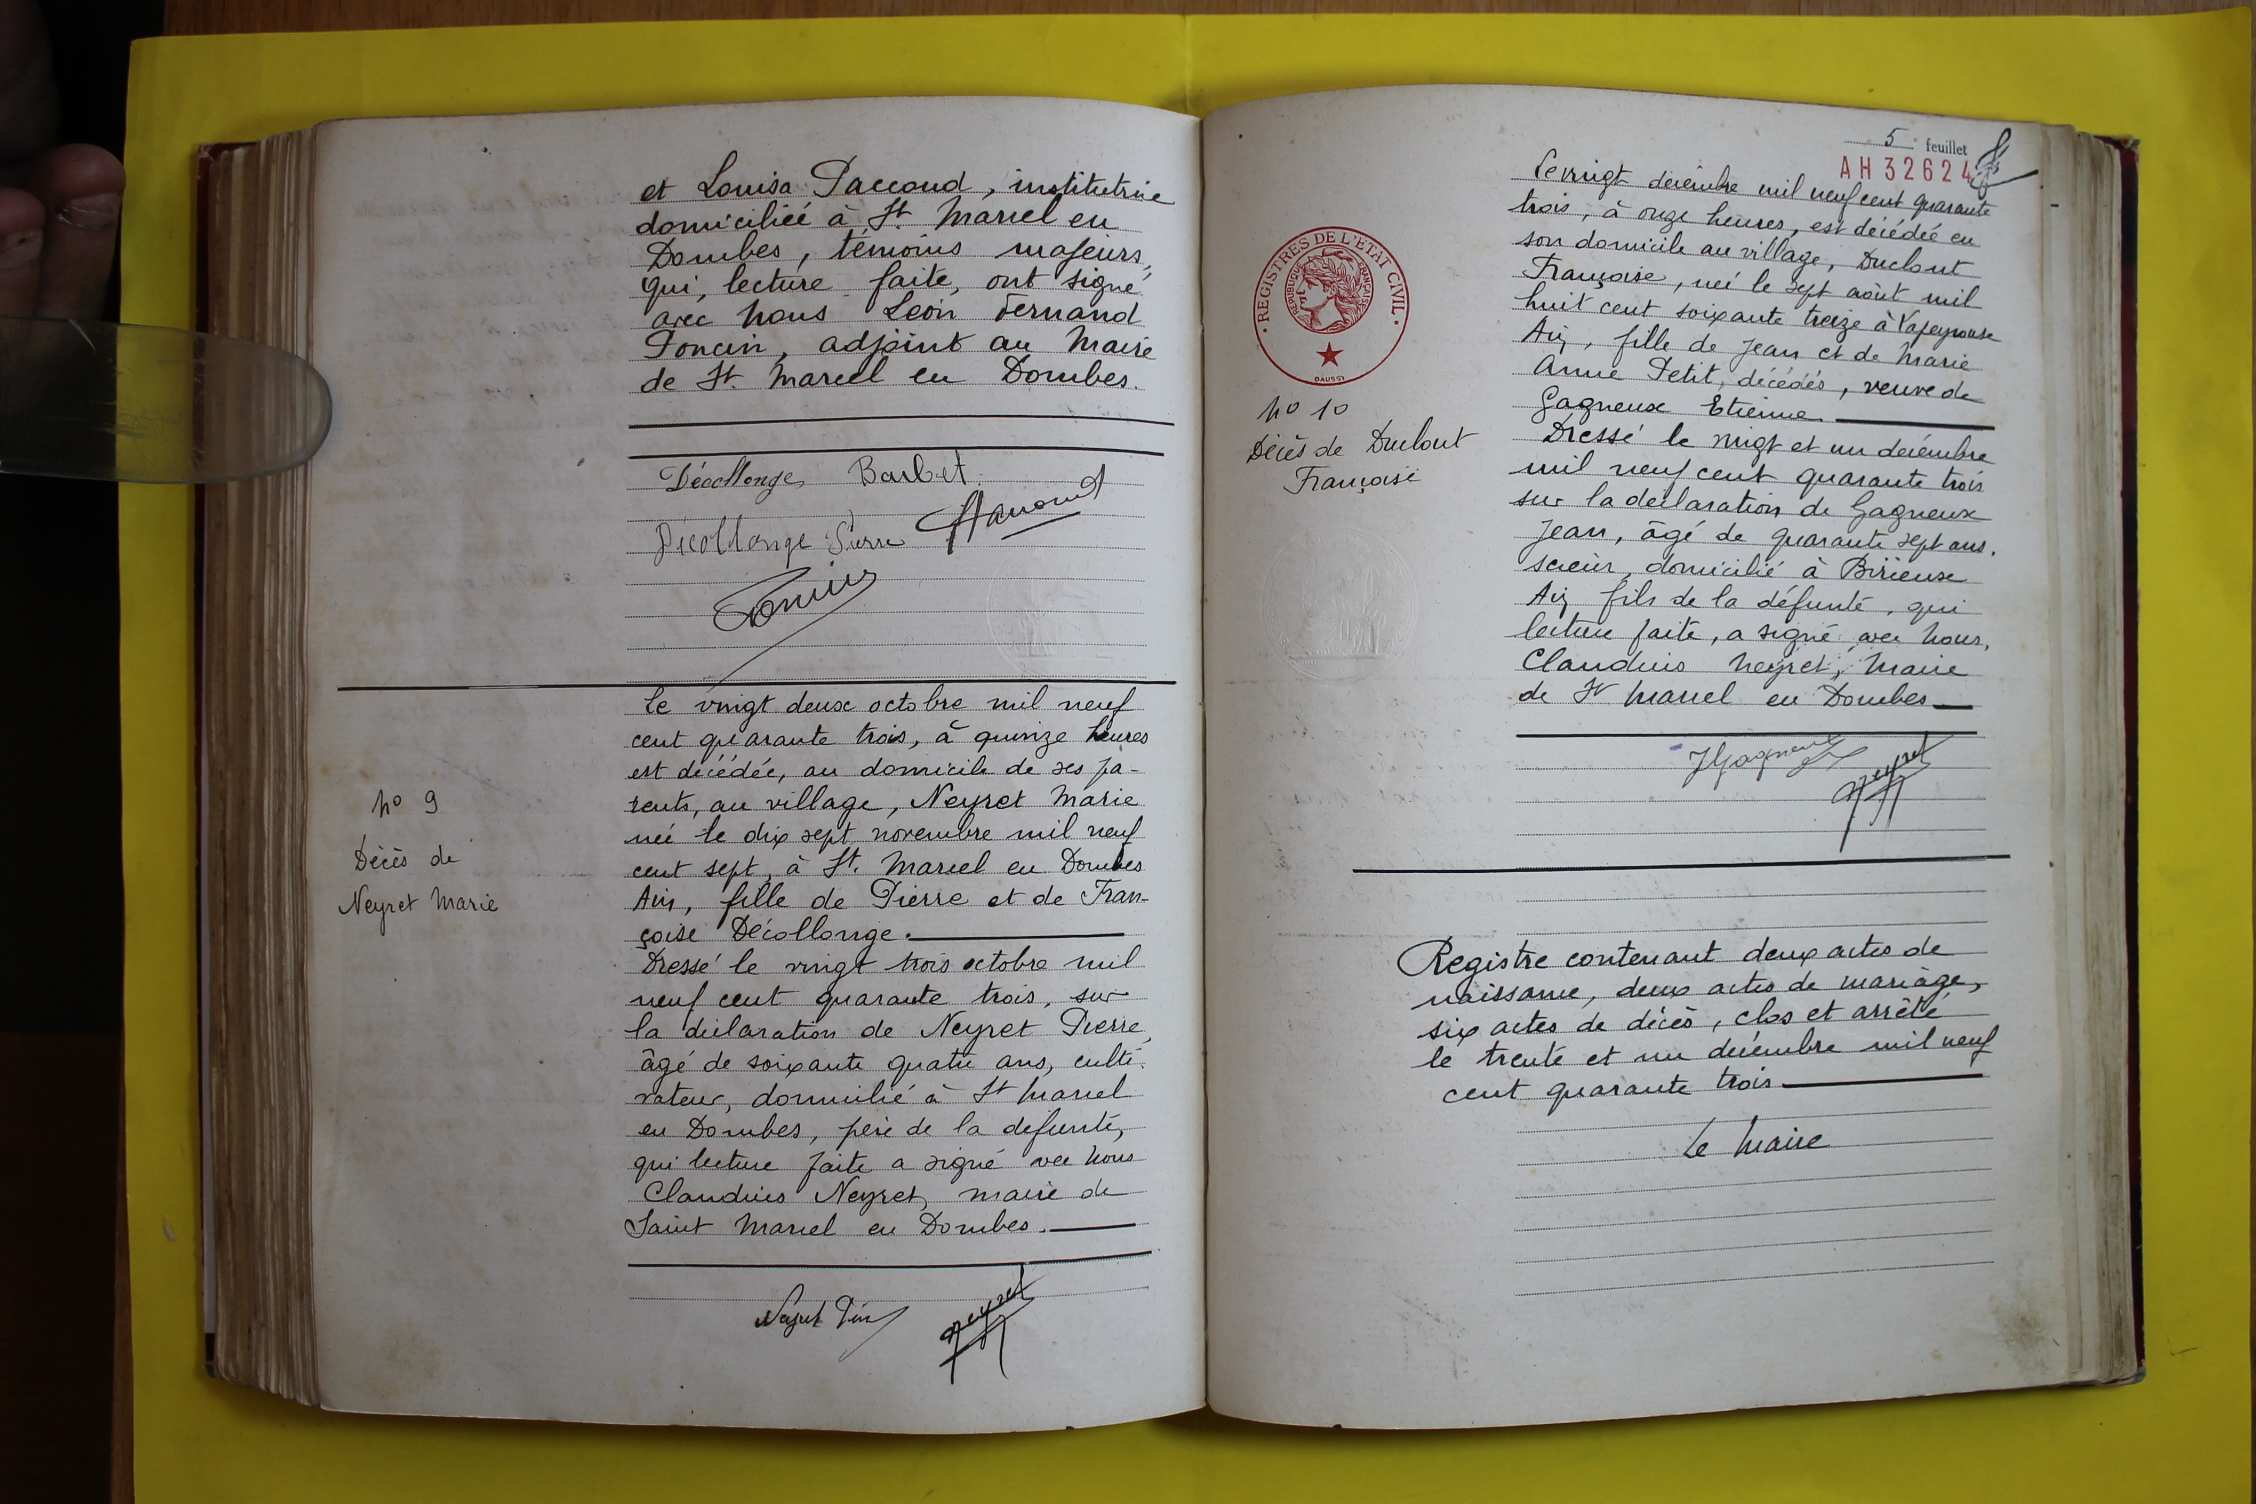 et Louisa Paccoud, institutrice
domiciliée à St. Marcel en
Dombes, témoins majeurs,
qui, lecture faite, ont signé
avec Nous Léon Fernand
Poncin, adjoint au Maire
de St. Marcel en Dombes.
Décollonge Barbet
Décollonge Pierre
Poncin
No 9
Décès de
Neyret Marie
Le vingt deux octobre mil neuf
cent quarante trois, à quinze heures
est décédée, au domicile de ses pa-
rents, au village, Neyret Marie
née le dix sept novembre mil neuf
cent sept, à St. Marcel en Dombes
Ain, fille de Pierre et de Fran-
çoise Décollonge.
Dressé le vingt trois octobre mil
neuf cent quarante trois, sur
la déclaration de Neyret Pierre,
âgé de soixante quatre ans, culti-
vateur, domicilié à St Marcel
en Dombes, père de la défunte,
qui lecture faite a signé avec Nous
Claudius Neyret, maire de
Saint Marcel en Dombes.
Neyret
5 feuillet
AH 32624
REGISTRES DE L'ETAT CIVIL
REPUBLIQUE FRANÇAISE
DAUSSY
No 10
Décès de Duclout
Françoise
Le vingt décembre mil neuf cent quarante
trois, à onze heures, est décédée en
son domicile au village, Duclout
Françoise, née le sept août mil
huit cent soixante treize à Lapeyrouse
Ain, fille de Jean et de Marie
Anne Petit, décédés, veuve de
Gagneux Etienne.
Dressé le vingt et un décembre
mil neuf cent quarante trois
sur la déclaration de Gagneux
Jean, âgé de quarante sept ans,
scieur, domicilié à Birieux
Ain, fils de la défunte, qui
lecture faite, a signé avec Nous,
Claudius Neyret, Maire
de St Marcel en Dombes
JGagneux
Neyret
Registre contenant deux actes de
naissance, deux actes de mariage,
six actes de décès, clos et arrêté
le trente et un décembre mil neuf
cent quarante trois
Le Maire